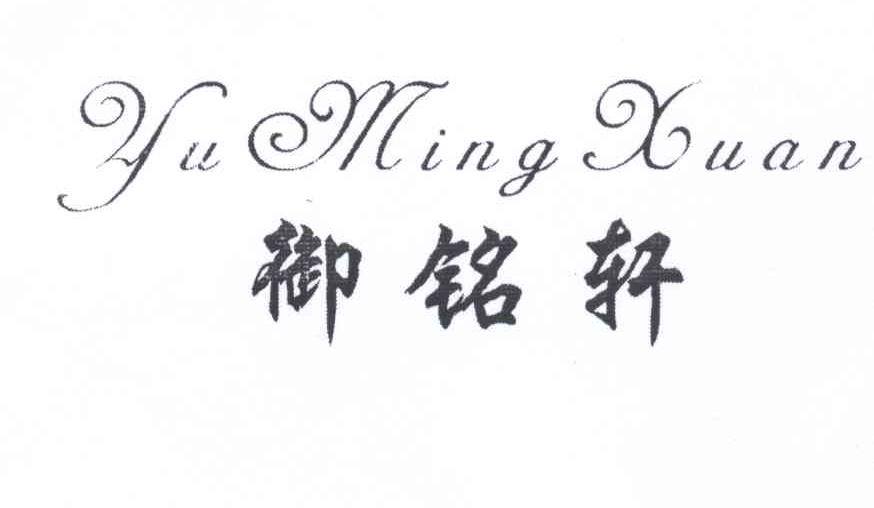 Yu Ming Xuan
御铭轩